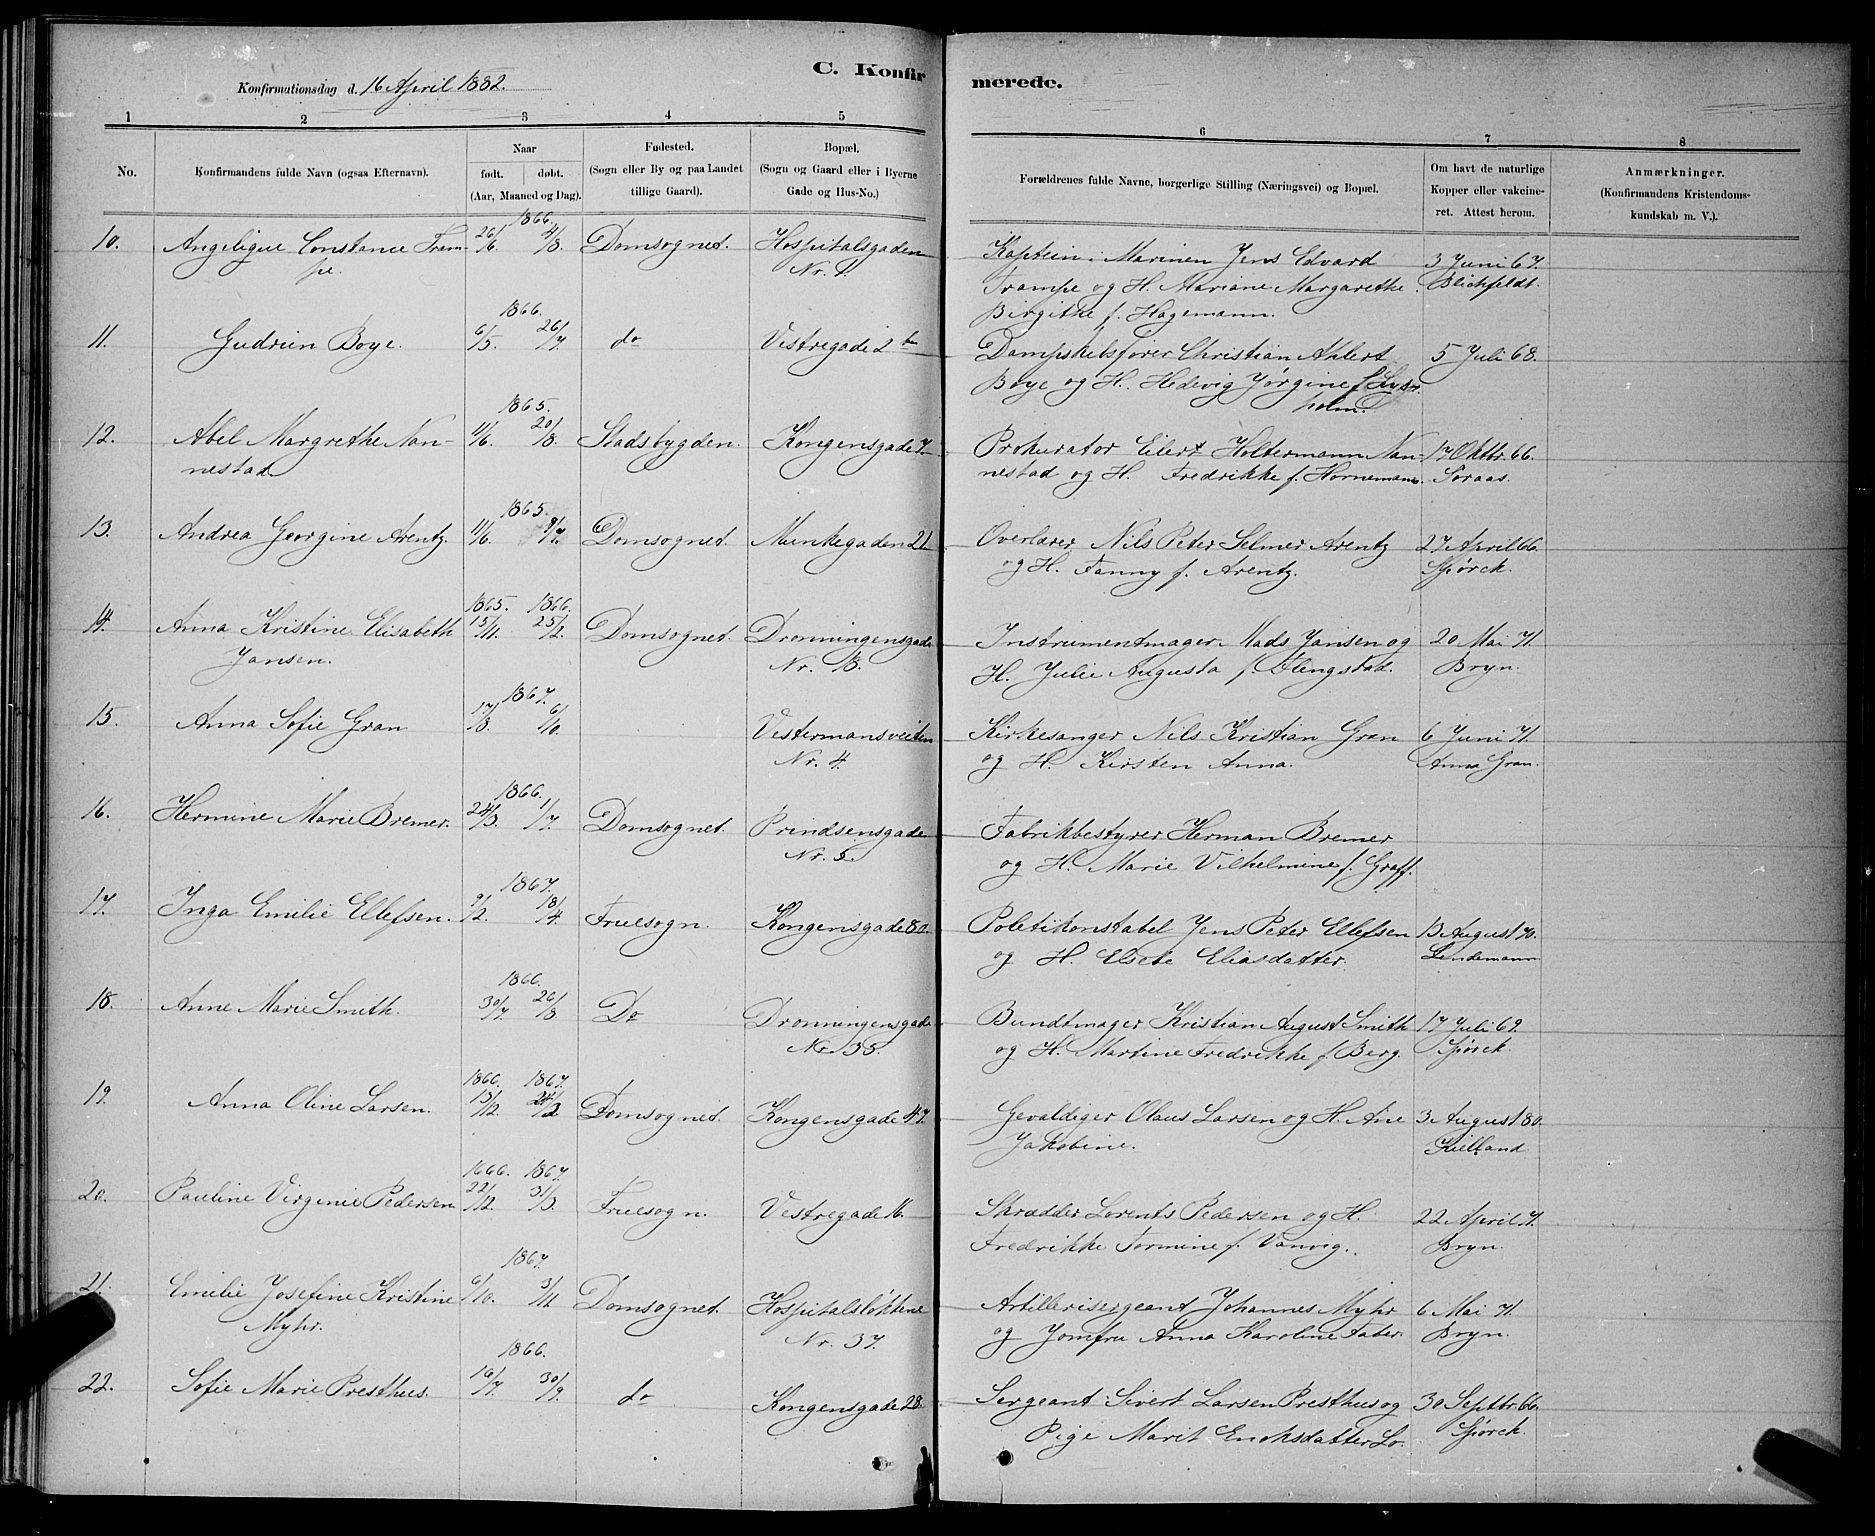 C. Konfirmerede.
Konfirmationsdag d. 16 April 1882.
1 2 3 4 5 6 7 8
No.
Konfirmandens fulde Navn (ogsaa Efternavn).
Naar
født. døbt.
(Aar, Maaned og Dag).
Fødested.
(Sogn eller By og paa Landet
tillige Gaard).
Bopæl.
(Sogn og Gaard eller i Byerne
Gade og Hus-No.)
Forældrenes fulde Navne, borgerlige Stilling (Næringsvei) og Bopæl.
Om havt de naturlige
Kopper eller vakcine-
ret. Attest herom.
Anmærkninger.
(Konfirmandens Kristendoms-
kundskab m. V.).
1866.
10. Angelique Constance Tram- 26/6. 4/8. Domsognet. Hospitalsgaden Kaptein i Marinen Jens Edvard 3 Juni 67.
pe. Nr. 1. Trampe og H. Mariane Margarethe Blichfeldt.
Birgitke f. Hagemann.
1866.
11. Gudrun Boye. 6/5. 26/7. do Vestregade 2 b Dampskibsfører Christian Ahlert 5 Juli 68.
Boye og H. Hedevig Jørgine f.
holm.
1865.
12. Abel Margrethe Nan- 11/6. 20/8. Stadsbygden. Kongensgade 7 Prokurator Eilert Holtermann Nan- 17 Oktbr 66.
nestad nestad og H. Fredrikke f. Hornemann. Søraas.
1865.
13. Andrea Georgine Arentz. 11/6. 9/7. Domsognet. Munkegaden 21 Overlærer Nils Peter Selmer Arentz 27 April 66.
og H. Fanny f. Arentz. Sjørck.
1865. 1866.
14. Anna Kristine Elisabeth 15/11. 25/2. Domsognet. Dronningensgade Instrumentmager Mads Jansen og 20 Mai 71.
Jansen. Nr. 13. H. Julie Augusta f. Flengstad. Bryn.
1867.
15. Anna Sofie Gran 17/8. 6/10. Vestermansveiten Kirkesanger Nils Kristian Gran 6 Juni 71.
Nr. 4. og H. Kirsten Anna. Anna Gran.
1866.
16. Hermine Marie Bremer. 24/3. 1/7. Domsognet. Prindsensgade Fabrikbestyrer Herman Bremer
Nr. 5. og H. Marie Vilhelmine f. Graff.
1867.
17. Inga Emilie Ellefsen. 9/2. 18/4. Fruesogn. Kongensgade 80. Politikonstabel Jens Peter Ellefsen 13 August 70.
og H. Elsebe Eliasdatter. Lindemann
1866.
18. Anne Marie Smith. 30/7. 26/8. Do Dronningensgade Bundtmager Kristian August Smith 17 Juli 69.
Nr. 35. og H. Martine Fredrikke f. Berg. Sjørck.
1866. 1867.
19. Anna Oline Larsen. 13/12. 24/2 Domsognet. Kongensgade 47. Gevaldiger Olaus Larsen og H. Ane 3 August 80.
Jakobine. Kielland
1666. 1867.
20. Pauline Virginie Pedersen 22/12. 31/3. Fruesogn. Vestregade 16. Skrædder Lorents Pedersen og H. 22 April 71.
Fredrikke Formine f. Vanvig. Bryn.
1867.
21. Emilie Josefine Kristine 6/10. 3/11. Domsognet. Hospitalsløkkene Artillerisergeant Johannes Myhr 6 Mai 71.
Myhr. Nr. 37. og Jomfru Anna Karoline Faber. Bryn.
1866.
22. Sofie Marie Presthus. 16/7. 30/9. do Kongensgade 28. Sergeant Sivert Larsen Presthus og 30 Septbr 66.
Pige Marit Enoksdatter Lo. Sjørck.